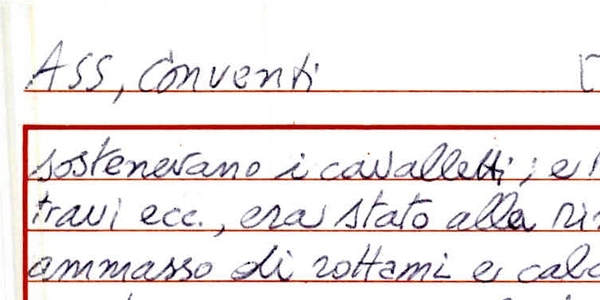 Ass, Conventi
sostenevano i cavalletti; e
travi ecc., era stato alla
ammasso di rottami e